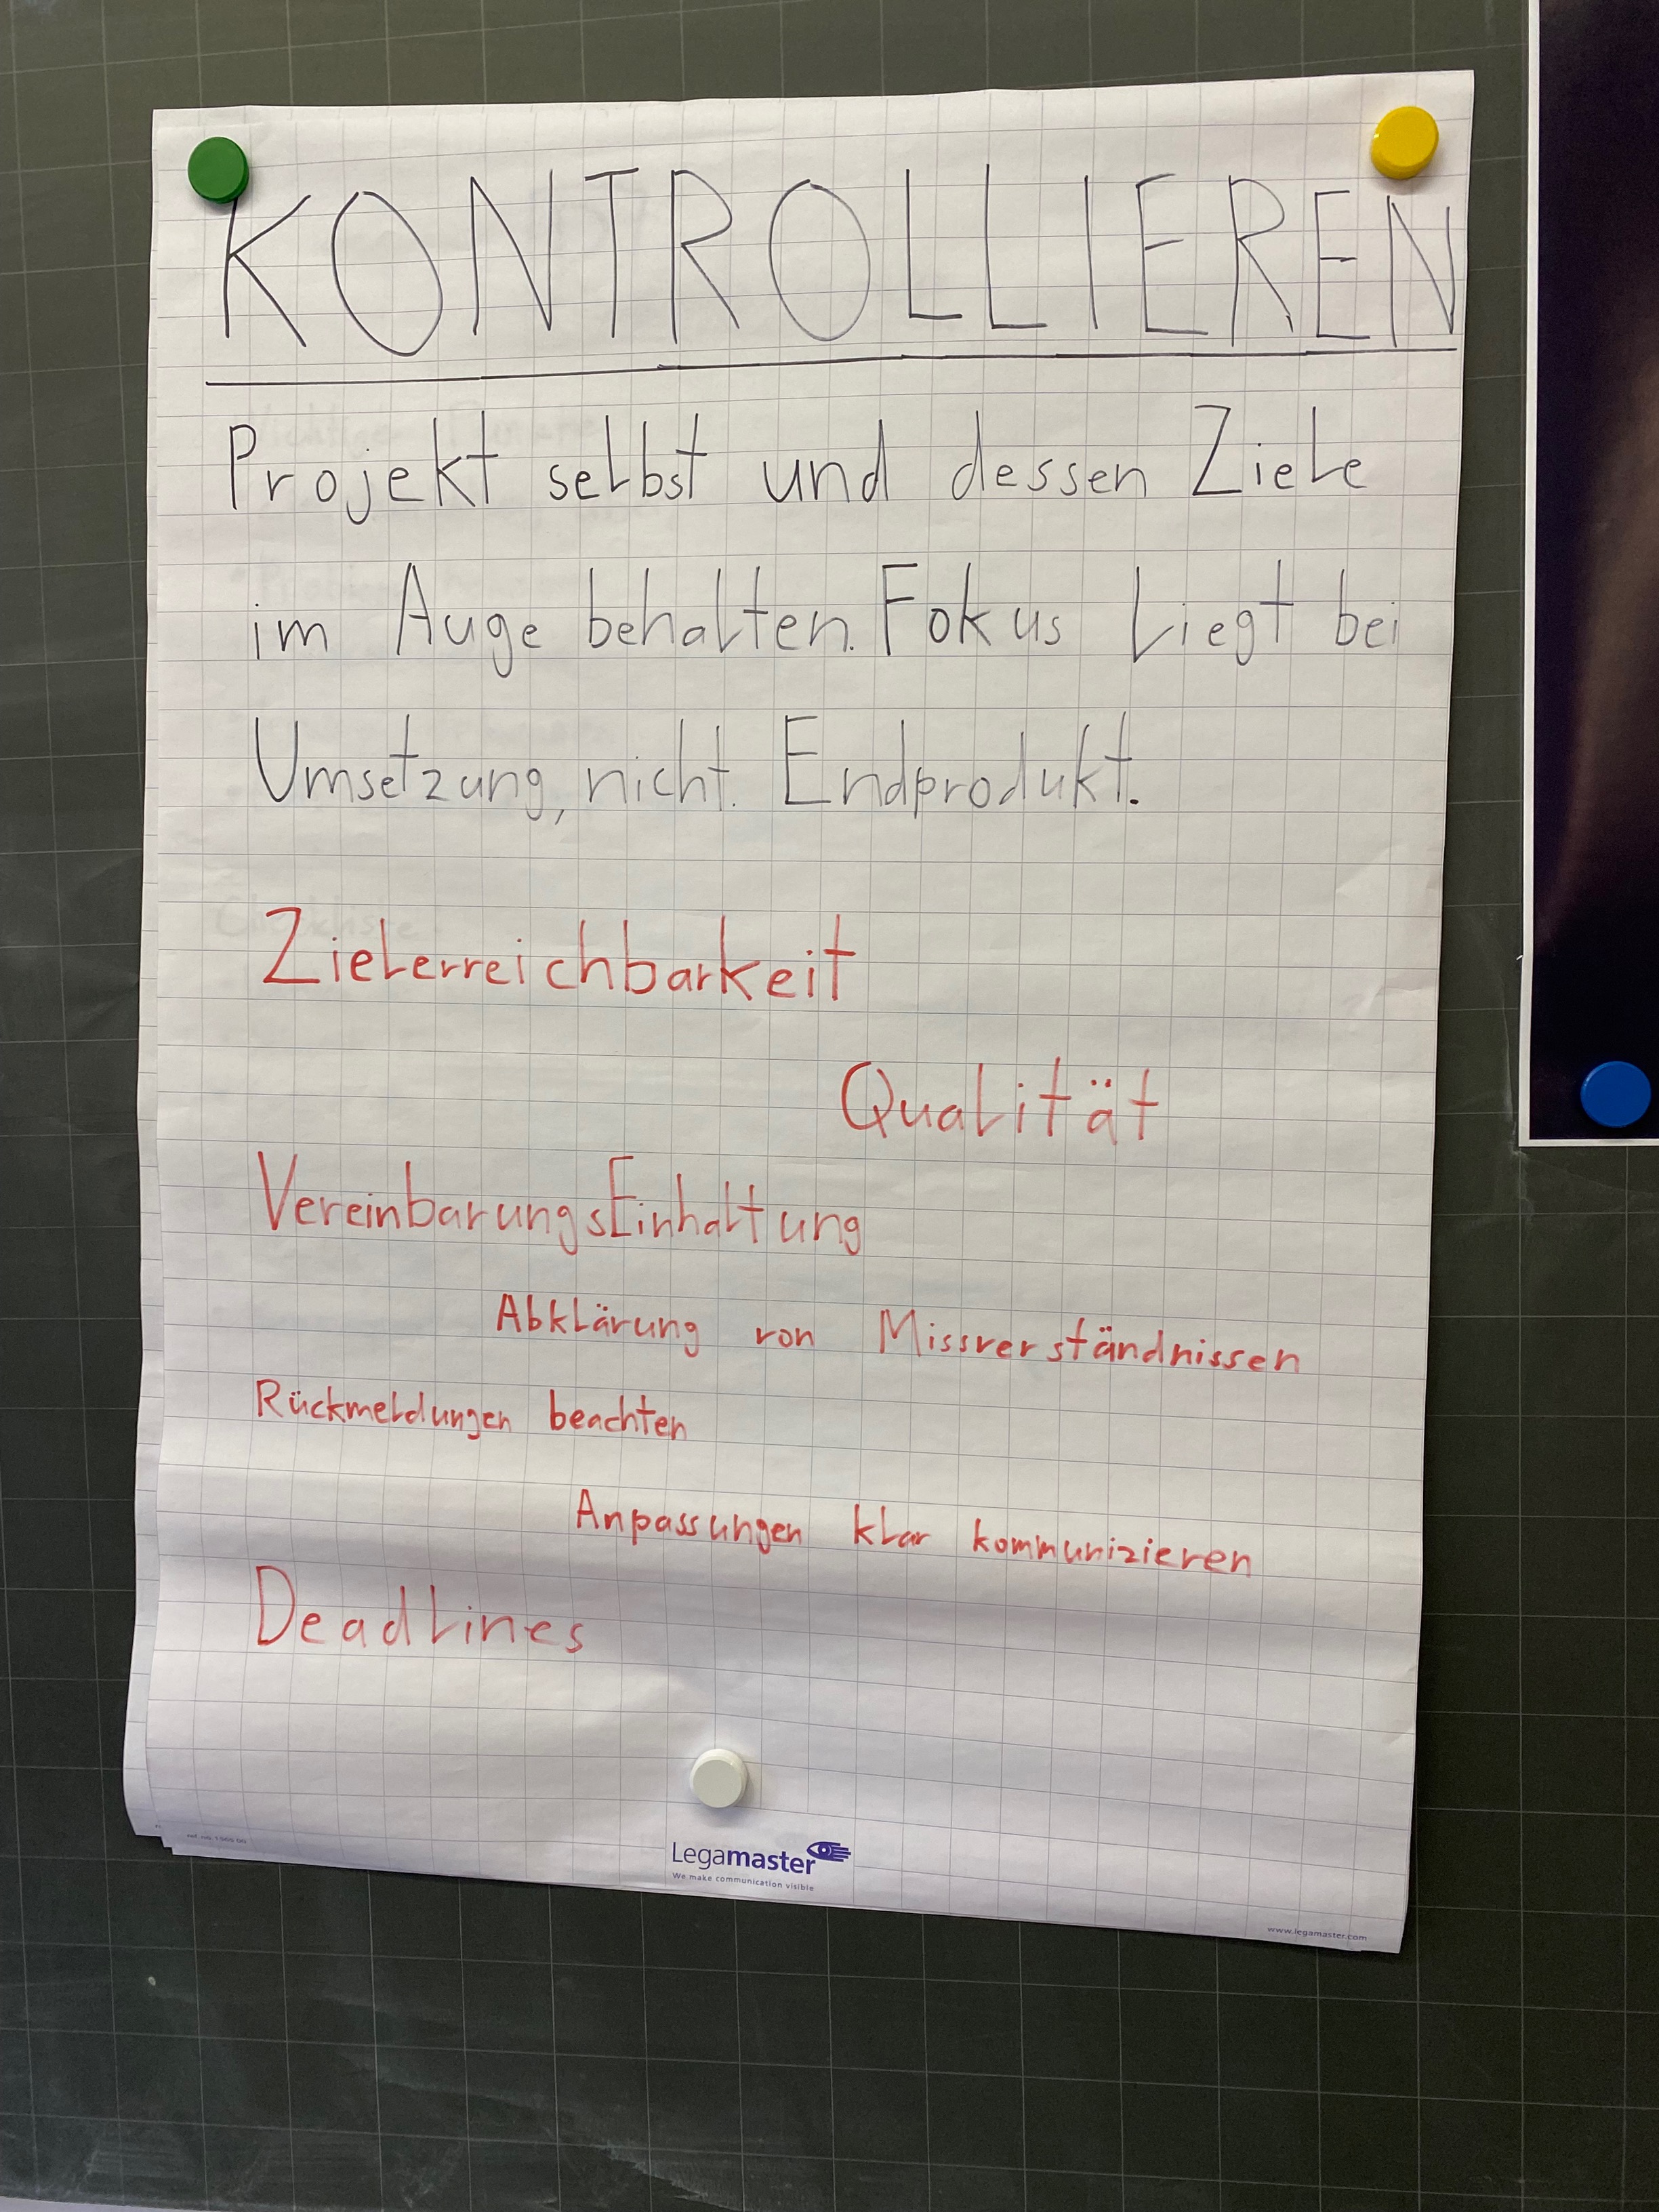 KONTROLLIEREN
Projekt selbst und dessen Ziele
im Auge behalten. Fokus liegt bei
Umsetzung, nicht. Endprodukt.
Zielerreichbarkeit
Qualität
VereinbarungsEinhaltung
Abklärung von Missverständnissen
Rückmeldungen beachten
Anpassungen klar kommunizieren
Deadlines
Legamaster
We make communication visible
www.legamaster.com